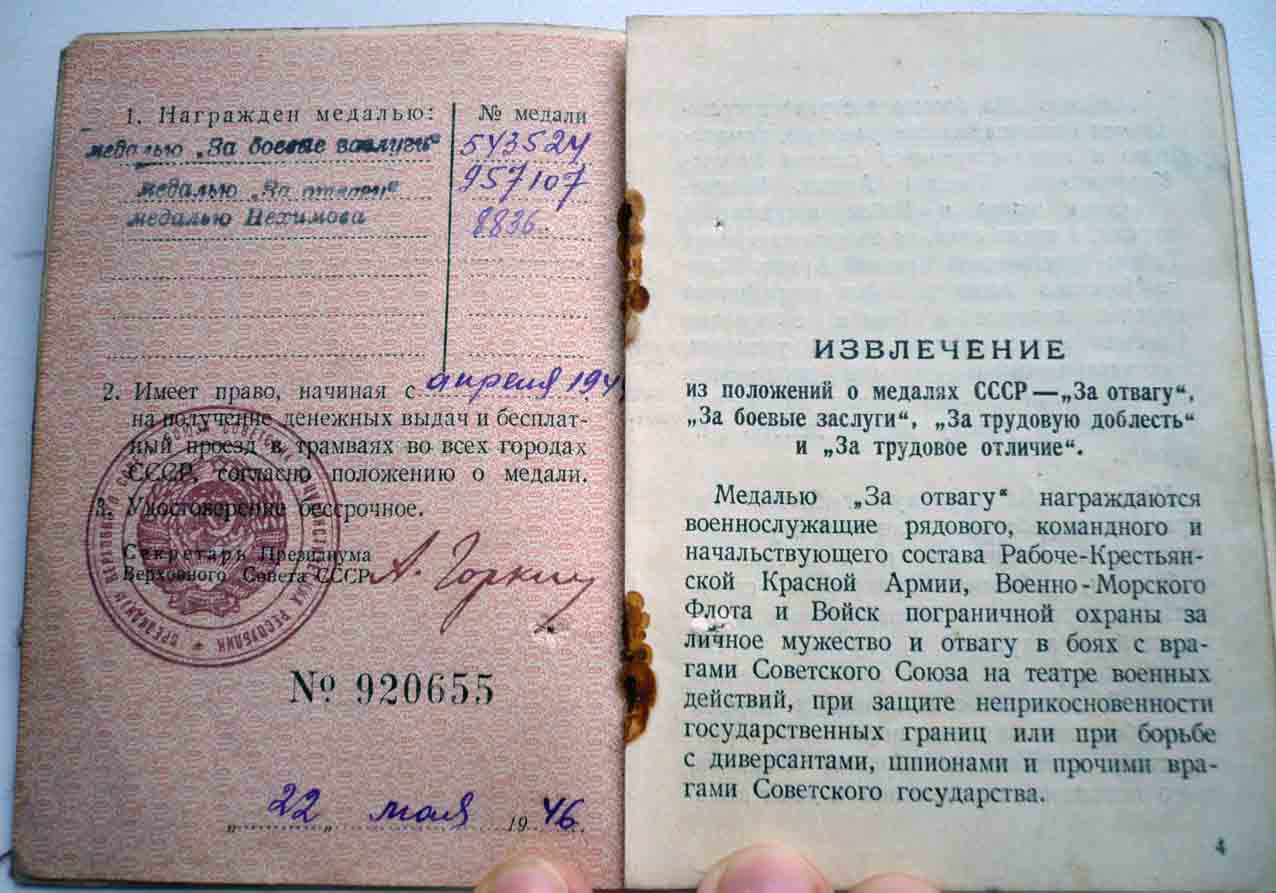 1. Награжден медалью: № медали
медалью „За боевые заслуги“ 543524
медалью „За отвагу“ 957107
медалью Нахимова 8836
2. Имеет право, начиная с апреля 194
на получение денежных выдач и бесплат-
ный проезд в трамваях во всех городах
СССР, согласно положению о медали.
3. Удостоверение бессрочное.
Секретарь Президиума
Верховного Совета СССР А. Горкин
№ 920655
„22„ мая 1946.
ИЗВЛЕЧЕНИЕ
из положений о медалях СССР — „За отвагу“,
„За боевые заслуги“, „За трудовую доблесть“
и „За трудовое отличие“.
Медалью „За отвагу“ награждаются
военнослужащие рядового, командного и
начальствующего состава Рабоче-Крестьян-
ской Красной Армии, Военно-Морского
Флота и Войск пограничной охраны за
личное мужество и отвагу в боях с вра-
гами Советского Союза на театре военных
действий, при защите неприкосновенности
государственных границ или при борьбе
с диверсантами, шпионами и прочими вра-
гами Советского государства.
4